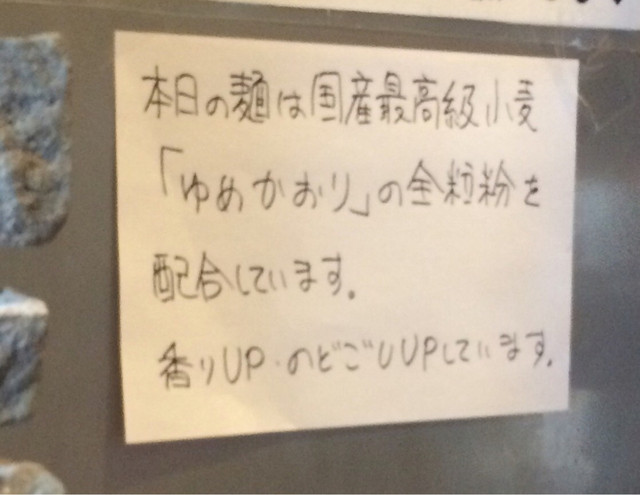 本日の麺は国産最高級小麦
「ゆめかおり」の全粒粉を
配合しています。
香りUP・のどごしUPしています。